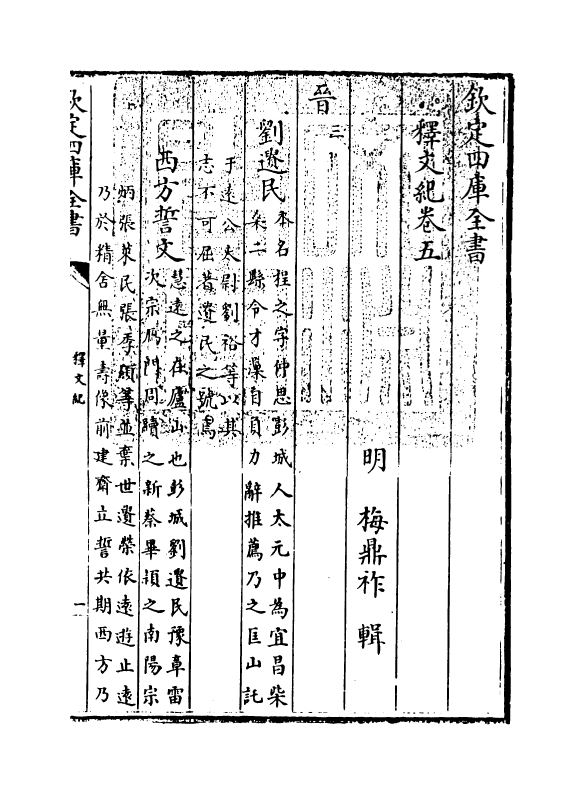 欽定四庫全書
釋文紀卷五
明 梅鼎祚 輯
晉
三
劉遺民
本名程之字仲思彭城人太元中為宜昌柴
桑二縣令才藻自負力辭推薦乃之匡山託
于遠公太尉劉裕等以其
志不可屈遺民之號焉
西方誓文
慧遠之在廬山也彭城劉遺民豫章雷
次宗鴈門周續之新蔡畢穎之南陽宗
炳張萊民張季碩等並棄世遺榮依遠遊止遠
乃於精舍無量壽像前建齋立誓共期西方乃
欽定四庫全書
釋文紀
一